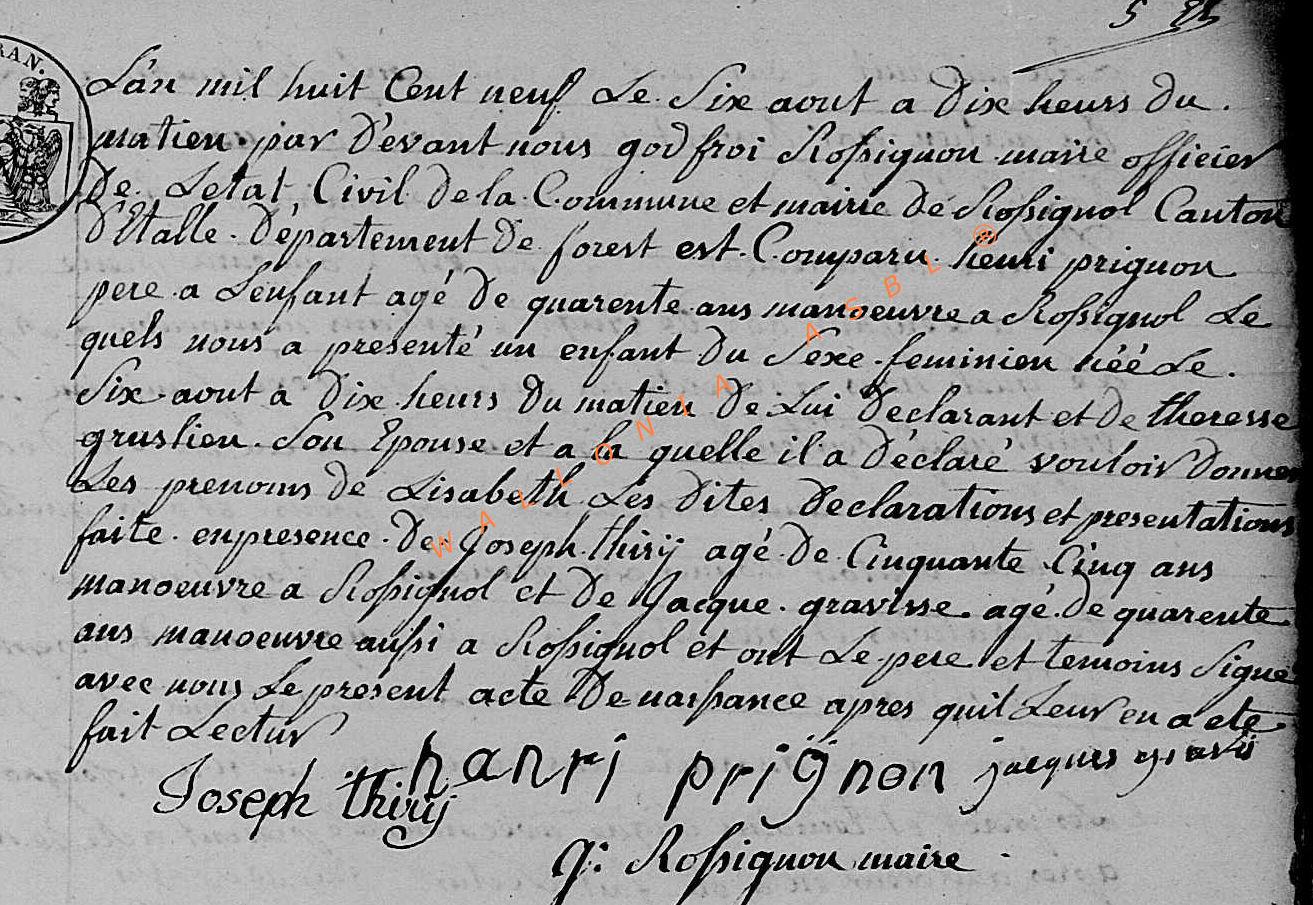 RAN.
L'an mil huit Cent neuf Le Six aout a Dix heurs du
matien par D'evant nous godfroi Rossignon maire officier
De Letat Civil de la Commune et mairie de Rossignol Canton
D'Etalle Département De forest est Comparu henri prignon
pere a Lenfant agé De quarente ans manoeuvre a Rossignol Le
quels nous a presenté un enfant Du Sexe feminien néé Le
Six aout a Dix heurs Du matien De Lui Declarant et de theresse
gruslien Son Epouse et a la quelle il a déclaré vouloir Donner
Les prenoms de Lisabeth Les Dites Declarations et presentations
faite en presence De Joseph thirÿ agé De Cinquante Cinq ans
manoeuvre a Rossignol et De Jacque gravisse agé De quarente
ans manoeuvre aussi a Rossignol et ont Le pere et temoins Signe
avec nous Le present acte De naissance apres quil Leur en a ete
fait Lectur
hanri prignon jacques
Joseph thirÿ
G: Rossignon maire
WALLONIA ASBL ®